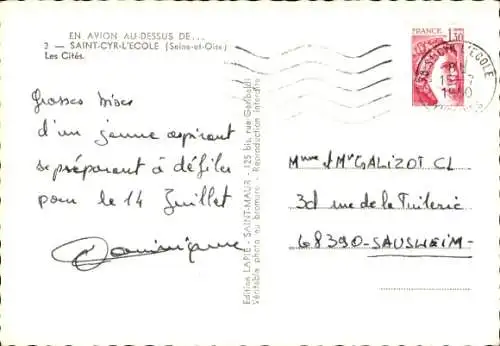 EN AVION AU-DESSUS DE...
3 — SAINT-CYR-L'ECOLE (Seine-et-Oise)
Les Cités.
Grosses bises
d'un jeune aspirant
se préparant à défiler
pour le 14 Juillet
Dominique
Edition LAPIE - SAINT-MAUR - 125 bis, rue Garibaldi
Véritable photo au bromure - Reproduction interdite
FRANCE
1,30
78 ST CYR L'ECOLE
1980
YVELINES
Mme et Mr GALIZOT CL
3d rue de la Tuilerie
68390 - SAUSHEIM -